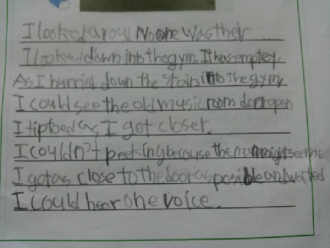 I looked arow No one was their
I looked down into the gym. It was emptey.
As I hurried down the stairs into the gym
I could see the old music room door open
I tiptoed as I got closer.
I couldn't peek in because the man might see me
I got as close to the door as posible and
I could hear one voice.